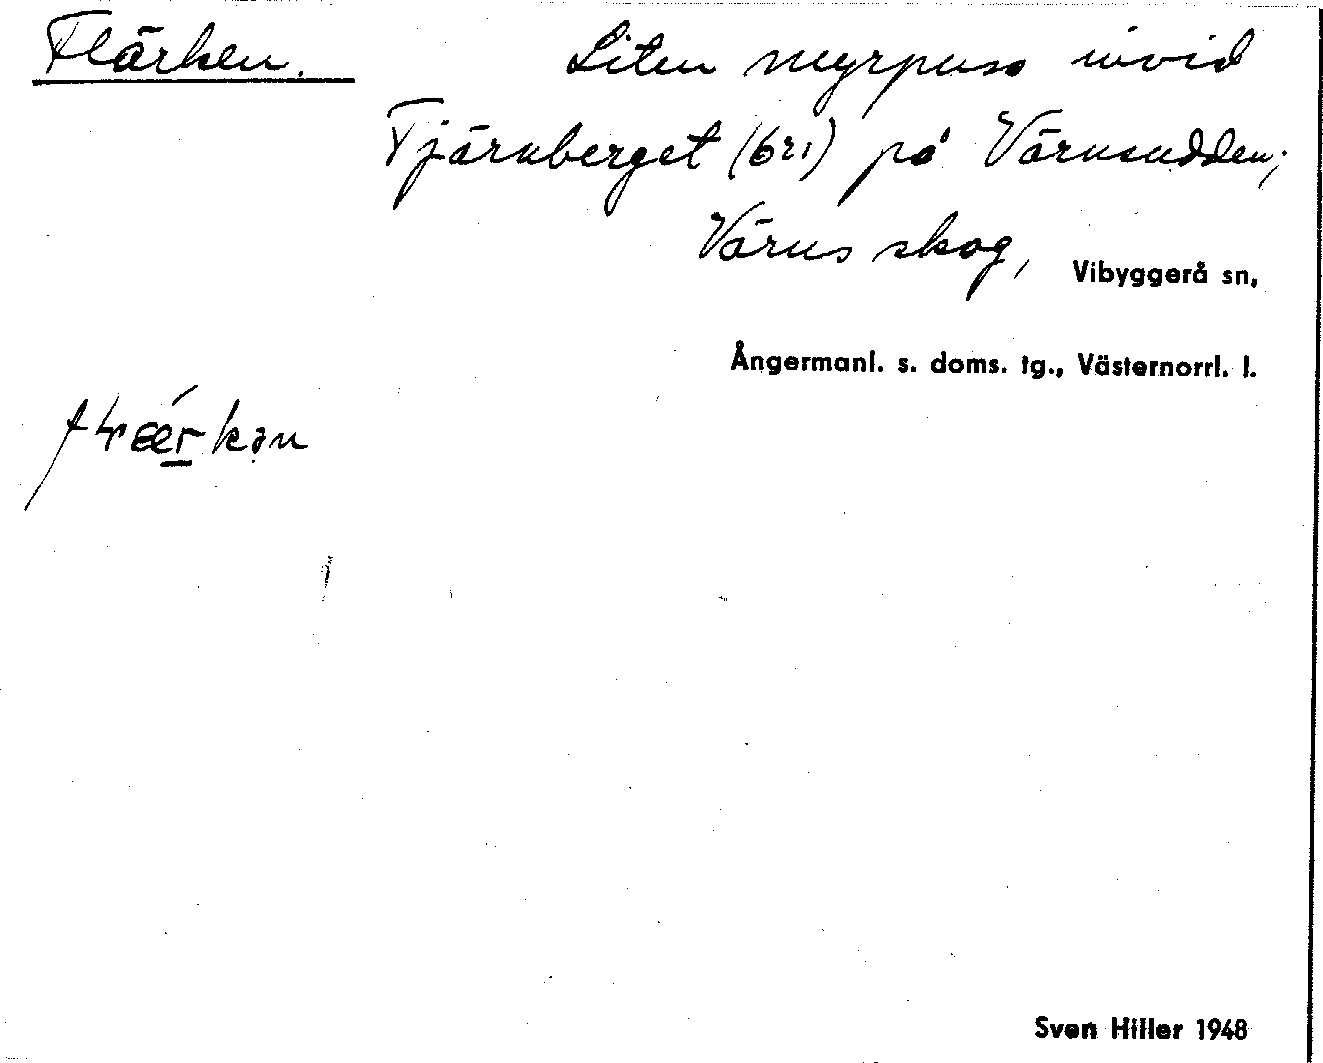 Flärken. Liten myrpuss invid
Tjärnberget (621) på Värnsudden;
Värns skog, Vibyggerå sn,
Ångermanl. s. doms. tg., Västernorrl. l.
Sven Hiller 1948